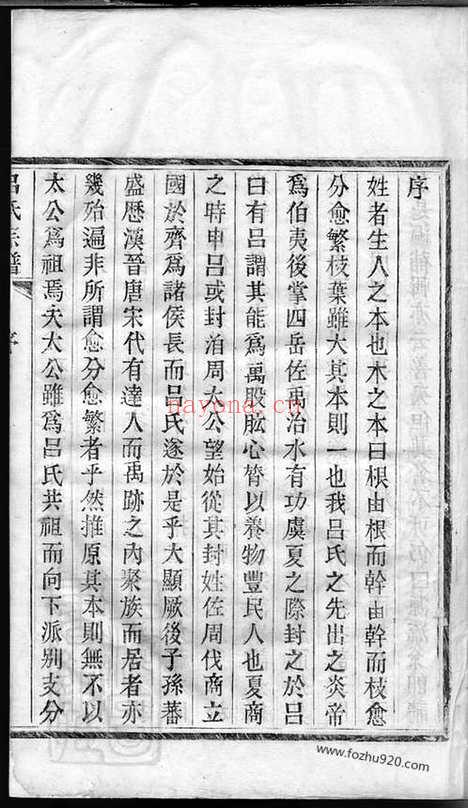 序
姓者生人之本也木之本曰根由根而幹由幹而枝愈
分愈繁枝葉雖大其本則一也我呂氏之先出之炎帝
爲伯夷後掌四岳佐禹治水有功虞夏之際封之於呂
曰有呂謂其能爲禹股肱心膂以養物豐民人也夏商
之時申呂或封洎周太公望始從其封姓佐周伐商立
國於齊爲諸侯長而呂氏遂於是乎大顯厥後子孫蕃
盛歷漢晉唐宋代有達人而禹跡之內聚族而居者亦
幾殆遍非所謂愈分愈繁者乎然推原其本則無不以
太公爲祖焉夫太公雖爲呂氏共祖而向下派別支分
呂氏宗譜 序
nayona.cn
www.fozhu920.com